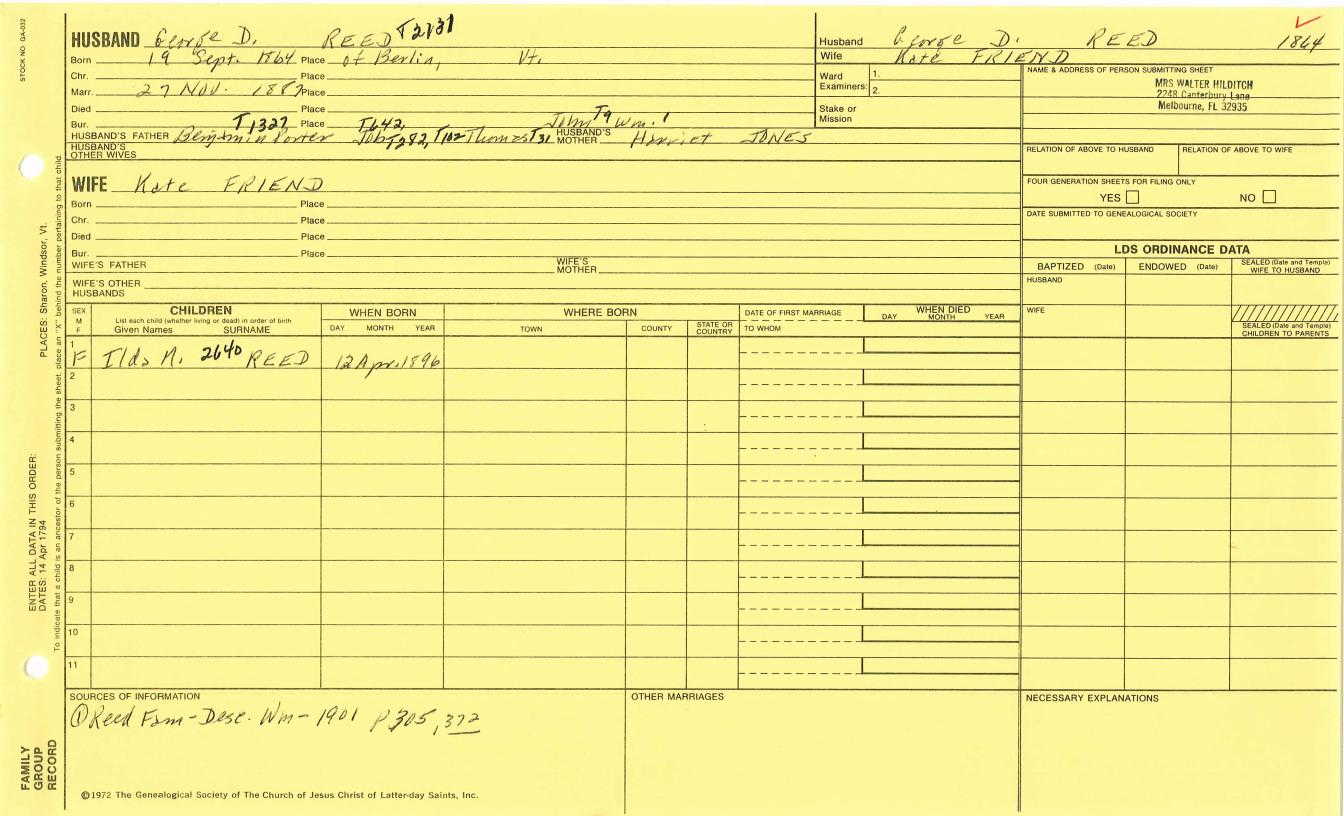 STOCK NO. GA-032
HUSBAND George D. REED T2131
Born 19 Sept. 1864 Place of Berlin, Vt.
Chr. Place
Marr. 27 Nov. 1887 Place
Died Place
Bur. Place
T1327 T642, John T9 Wm. 1
HUSBAND'S FATHER Benjamin Porter Job T282, T102 Thomas T31 HUSBAND'S MOTHER Harriet JONES
HUSBAND'S OTHER WIVES
Husband George D. REED 1864
Wife Kate FRIEND
Ward Examiners: 1.
2.
Stake or Mission
NAME & ADDRESS OF PERSON SUBMITTING SHEET
MRS WALTER HILDITCH
2248 Canterbury Lane
Melbourne, FL 32935
RELATION OF ABOVE TO HUSBAND RELATION OF ABOVE TO WIFE
FOUR GENERATION SHEETS FOR FILING ONLY
YES NO
DATE SUBMITTED TO GENEALOGICAL SOCIETY
WIFE Kate FRIEND
Born Place
Chr. Place
Died Place
Bur. Place
WIFE'S FATHER WIFE'S MOTHER
WIFE'S OTHER HUSBANDS
LDS ORDINANCE DATA
BAPTIZED (Date) ENDOWED (Date) SEALED (Date and Temple) WIFE TO HUSBAND
HUSBAND
WIFE
SEALED (Date and Temple) CHILDREN TO PARENTS
SEX M F
CHILDREN
List each child (whether living or dead) in order of birth
Given Names SURNAME
WHEN BORN
DAY MONTH YEAR
WHERE BORN
TOWN COUNTY STATE OR COUNTRY
DATE OF FIRST MARRIAGE
TO WHOM
WHEN DIED
DAY MONTH YEAR
1 F Ilda M. 2640 REED 12 Apr. 1896
2
3
4
5
6
7
8
9
10
11
SOURCES OF INFORMATION
① Reed Fam-Desc. Wm- 1901 P305, 372
OTHER MARRIAGES
NECESSARY EXPLANATIONS
©1972 The Genealogical Society of The Church of Jesus Christ of Latter-day Saints, Inc.
FAMILY GROUP RECORD
ENTER ALL DATA IN THIS ORDER:
DATES: 14 Apr 1794 PLACES: Sharon, Windsor, Vt.
To indicate that a child is an ancestor of the person submitting the sheet, place an "X" behind the number pertaining to that child.